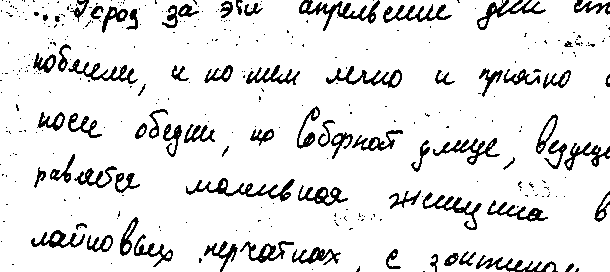 ... Город за эти апрельские дни ст
побелели, и по ним легко и приятно
после обедни, по Соборной улице, ведуще
равляется маленькая женщина в
лайковых перчатках, с зонтиком